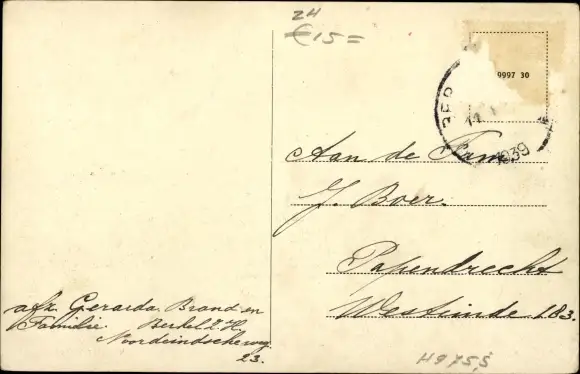 24
€15=
9997 30
BER
14
1939
Aan de Fam
J. Boer.
Papendrecht
Westeinde 183.
afz. Gerarda Brand en
Familie Berkel Z.H.
Noordeindscheweg
23.
H9755